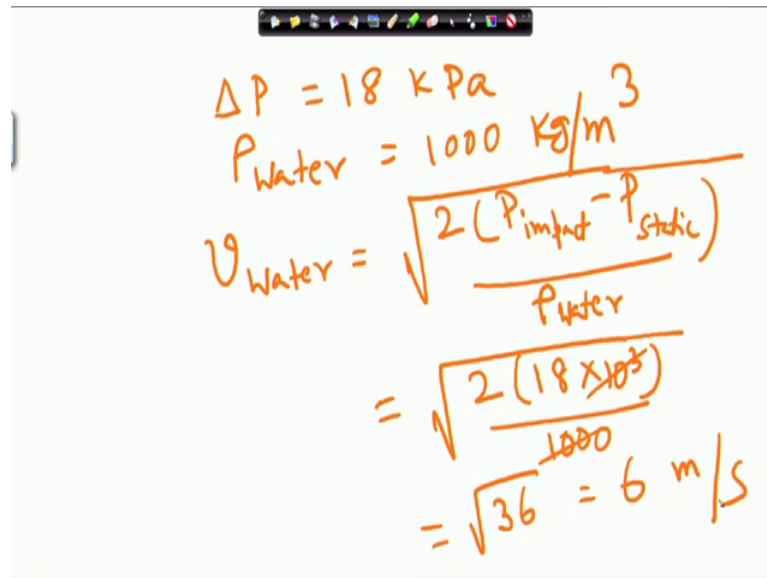 ΔP = 18 kPa
ρwater = 1000 kg/m³
υwater = √(2(Pimpact - Pstatic)/ρwater)
= √(2(18×10³)/1000)
= √36 = 6 m/s